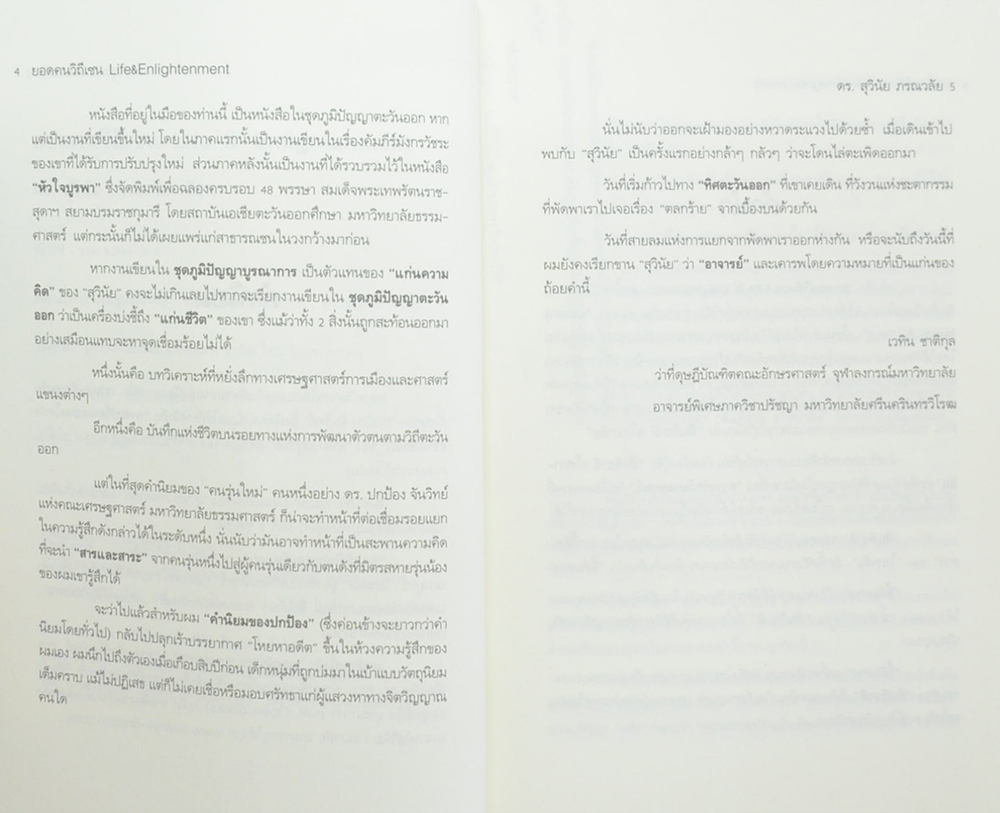 4 ยอดคนวิถีเซน Life&Enlightenment
หนังสือที่อยู่ในมือของท่านนี้ เป็นหนังสือในชุดภูมิปัญญาตะวันออก หาก
แต่เป็นงานที่เขียนขึ้นใหม่ โดยในภาคแรกนั้นเป็นงานเขียนในเรื่องคัมภีร์มังกรวัชระ
ของเขาที่ได้รับการปรับปรุงใหม่ ส่วนภาคหลังนั้นเป็นงานที่ได้รวบรวมไว้ในหนังสือ
"หัวใจบูรพา" ซึ่งจัดพิมพ์เพื่อฉลองครบรอบ 48 พรรษา สมเด็จพระเทพรัตนราช-
สุดาฯ สยามบรมราชกุมารี โดยสถาบันเอเชียตะวันออกศึกษา มหาวิทยาลัยธรรม-
ศาสตร์ แต่กระนั้นก็ไม่ได้เผยแพร่แก่สาธารณชนในวงกว้างมาก่อน
หากงานเขียนใน ชุดภูมิปัญญาบูรณาการ เป็นตัวแทนของ "แก่นความ
คิด" ของ "สุวินัย" คงจะไม่เกินเลยไปหากจะเรียกงานเขียนใน ชุดภูมิปัญญาตะวัน
ออก ว่าเป็นเครื่องบ่งชี้ถึง "แก่นชีวิต" ของเขา ซึ่งแม้ว่าทั้ง 2 สิ่งนั้นถูกสะท้อนออกมา
อย่างเสมือนแทบจะหาจุดเชื่อมร้อยไม่ได้
หนึ่งนั้นคือ บทวิเคราะห์ที่หยั่งลึกทางเศรษฐศาสตร์การเมืองและศาสตร์
แขนงต่างๆ
อีกหนึ่งคือ บันทึกแห่งชีวิตบนรอยทางแห่งการพัฒนาตัวตนตามวิถีตะวัน
ออก
แต่ในที่สุดคำนิยมของ "คนรุ่นใหม่" คนหนึ่งอย่าง ดร. ปกป้อง จันวิทย์
แห่งคณะเศรษฐศาสตร์ มหาวิทยาลัยธรรมศาสตร์ ก็น่าจะทำหน้าที่ต่อเชื่อมรอยแยก
ในความรู้สึกดังกล่าวได้ในระดับหนึ่ง นั่นนับว่ามันอาจทำหน้าที่เป็นสะพานความคิด
ที่จะนำ "สารและสาระ" จากคนรุ่นหนึ่งไปสู่ผู้คนรุ่นเดียวกับตนดังที่มิตรสหายรุ่นน้อง
ของผมเขารู้สึกได้
จะว่าไปแล้วสำหรับผม "คำนิยมของปกป้อง" (ซึ่งค่อนข้างจะยาวกว่าคำ
นิยมโดยทั่วไป) กลับไปปลุกเร้าบรรยากาศ "โหยหาอดีต" ขึ้นในห้วงความรู้สึกของ
ผมเอง ผมนึกไปถึงตัวเองเมื่อเกือบสิบปีก่อน เด็กหนุ่มที่ถูกบ่มมาในเบ้าแบบวัตถุนิยม
เต็มคราบ แม้ไม่ปฏิเสธ แต่ก็ไม่เคยเชื่อหรือมอบศรัทธาแก่ผู้แสวงหาทางจิตวิญญาณ
คนใด
ดร. สุวินัย ภรณวลัย 5
นั่นไม่นับว่าออกจะเฝ้ามองอย่างหวาดระแวงไปด้วยซ้ำ เมื่อเดินเข้าไป
พบกับ "สุวินัย" เป็นครั้งแรกอย่างกล้าๆ กลัวๆ ว่าจะโดนไล่ตะเพิดออกมา
วันที่เริ่มก้าวไปทาง "ทิศตะวันออก" ที่เขาเคยเดิน ที่วังวนแห่งชะตากรรม
ที่พัดพาเราไปเจอเรื่อง "ตลกร้าย" จากเบื้องบนด้วยกัน
วันที่สายลมแห่งการแยกจากพัดพาเราออกห่างกัน หรือจะนับถึงวันนี้ที่
ผมยังคงเรียกขาน "สุวินัย" ว่า "อาจารย์" และเคารพโดยความหมายที่เป็นแก่นของ
ถ้อยคำนี้
เวทิน ชาติกุล
ว่าที่ดุษฎีบัณฑิตคณะอักษรศาสตร์ จุฬาลงกรณ์มหาวิทยาลัย
อาจารย์พิเศษภาควิชาปรัชญา มหาวิทยาลัยศรีนครินทรวิโรฒ